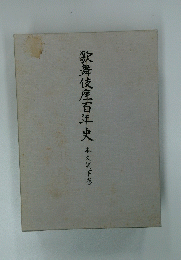 歌舞伎座百年史 本文篇下巻